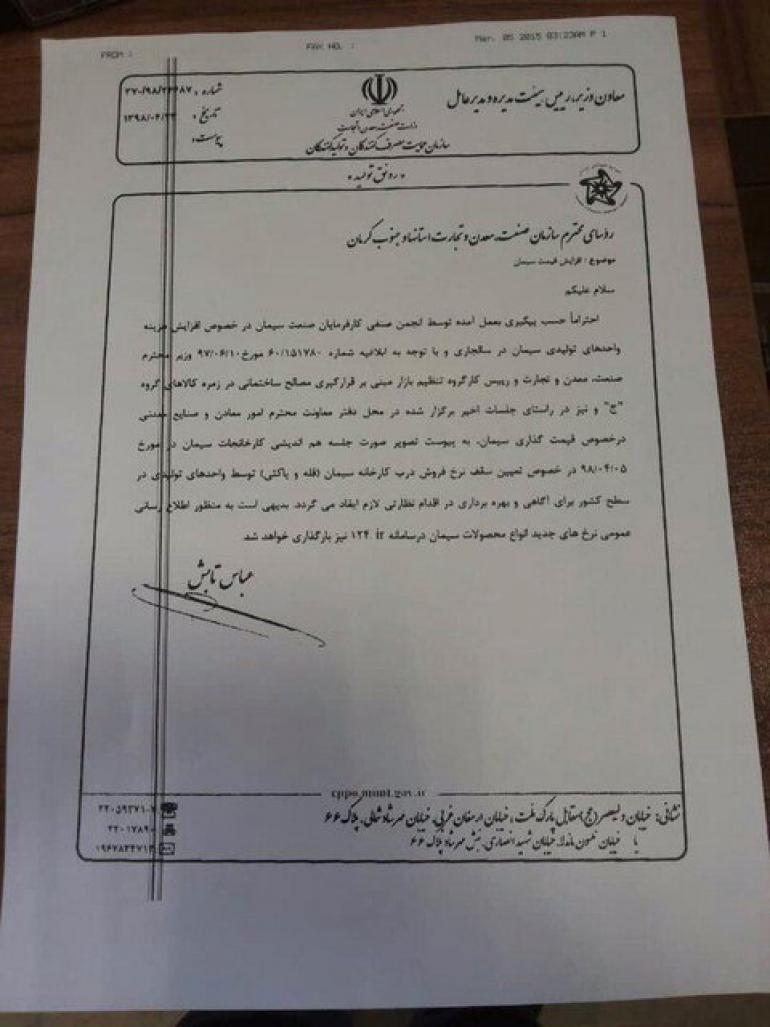 FROM :
FAX NO. :
Mar. 05 2015 03:23AM P 1
معاون وزیر، رییس هیئت مدیره و مدیرعامل
جمهوری اسلامی ایران
وزارت صنعت، معدن و تجارت
سازمان حمایت مصرف کنندگان و تولیدکنندگان
شماره :
تاریخ :
پیوست:
«رونق تولید»
رؤسای محترم سازمان صنعت، معدن و تجارت استانها و جنوب کرمان
موضوع : افزایش قیمت سیمان
سلام علیکم
احتراماً حسب پیگیری بعمل آمده توسط انجمن صنفی کارفرمایان صنعت سیمان در خصوص افزایش هزینه
واحدهای تولیدی سیمان در سالجاری و با توجه به ابلاغیه شماره ۶۰/۱۵۱۷۸۰ مورخ ۹۷/۰۶/۱۰ وزیر محترم
صنعت، معدن و تجارت و رییس کارگروه تنظیم بازار مبنی بر قرارگیری مصالح ساختمانی در زمره کالاهای گروه
"ج" و نیز در راستای جلسات اخیر برگزار شده در محل دفتر معاونت محترم امور معادن و صنایع معدنی
درخصوص قیمت گذاری سیمان، به پیوست تصویر صورت جلسه هم اندیشی کارخانجات سیمان در مورخ
۹۸/۰۴/۰۵ در خصوص تعیین سقف نرخ فروش درب کارخانه سیمان (فله و پاکتی) توسط واحدهای تولیدی در
سطح کشور برای آگاهی و بهره برداری در اقدام نظارتی لازم ایفاد می گردد. بدیهی است به منظور اطلاع رسانی
عمومی نرخ های جدید انواع محصولات سیمان درسامانه ۱۲۴. ir نیز بارگذاری خواهد شد.
عباس تابش
cppo.mimt.gov.ir
نشانی: خیابان ولیعصر (عج) مقابل پارک ملت، خیابان ارمغان غربی، خیابان مهرشاد شمالی، پلاک ۶۶
یا خیابان نلسون ماندلا، خیابان شهید انصاری، نبش مهرشاد پلاک ۶۶
۲۲۰۵۹۳۷۱-۷
۲۲۰۱۷۸۹۰